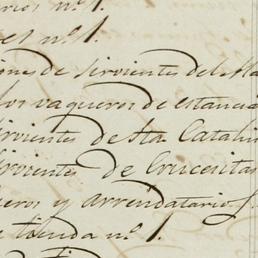 nº 1.
nº 1.
ones de Sirvientes del
los vaqueros de estancia
irvientes de Sta. Catali
Sirvientes de Crucecitas
eros y arrendatario
e tienda nº 1.